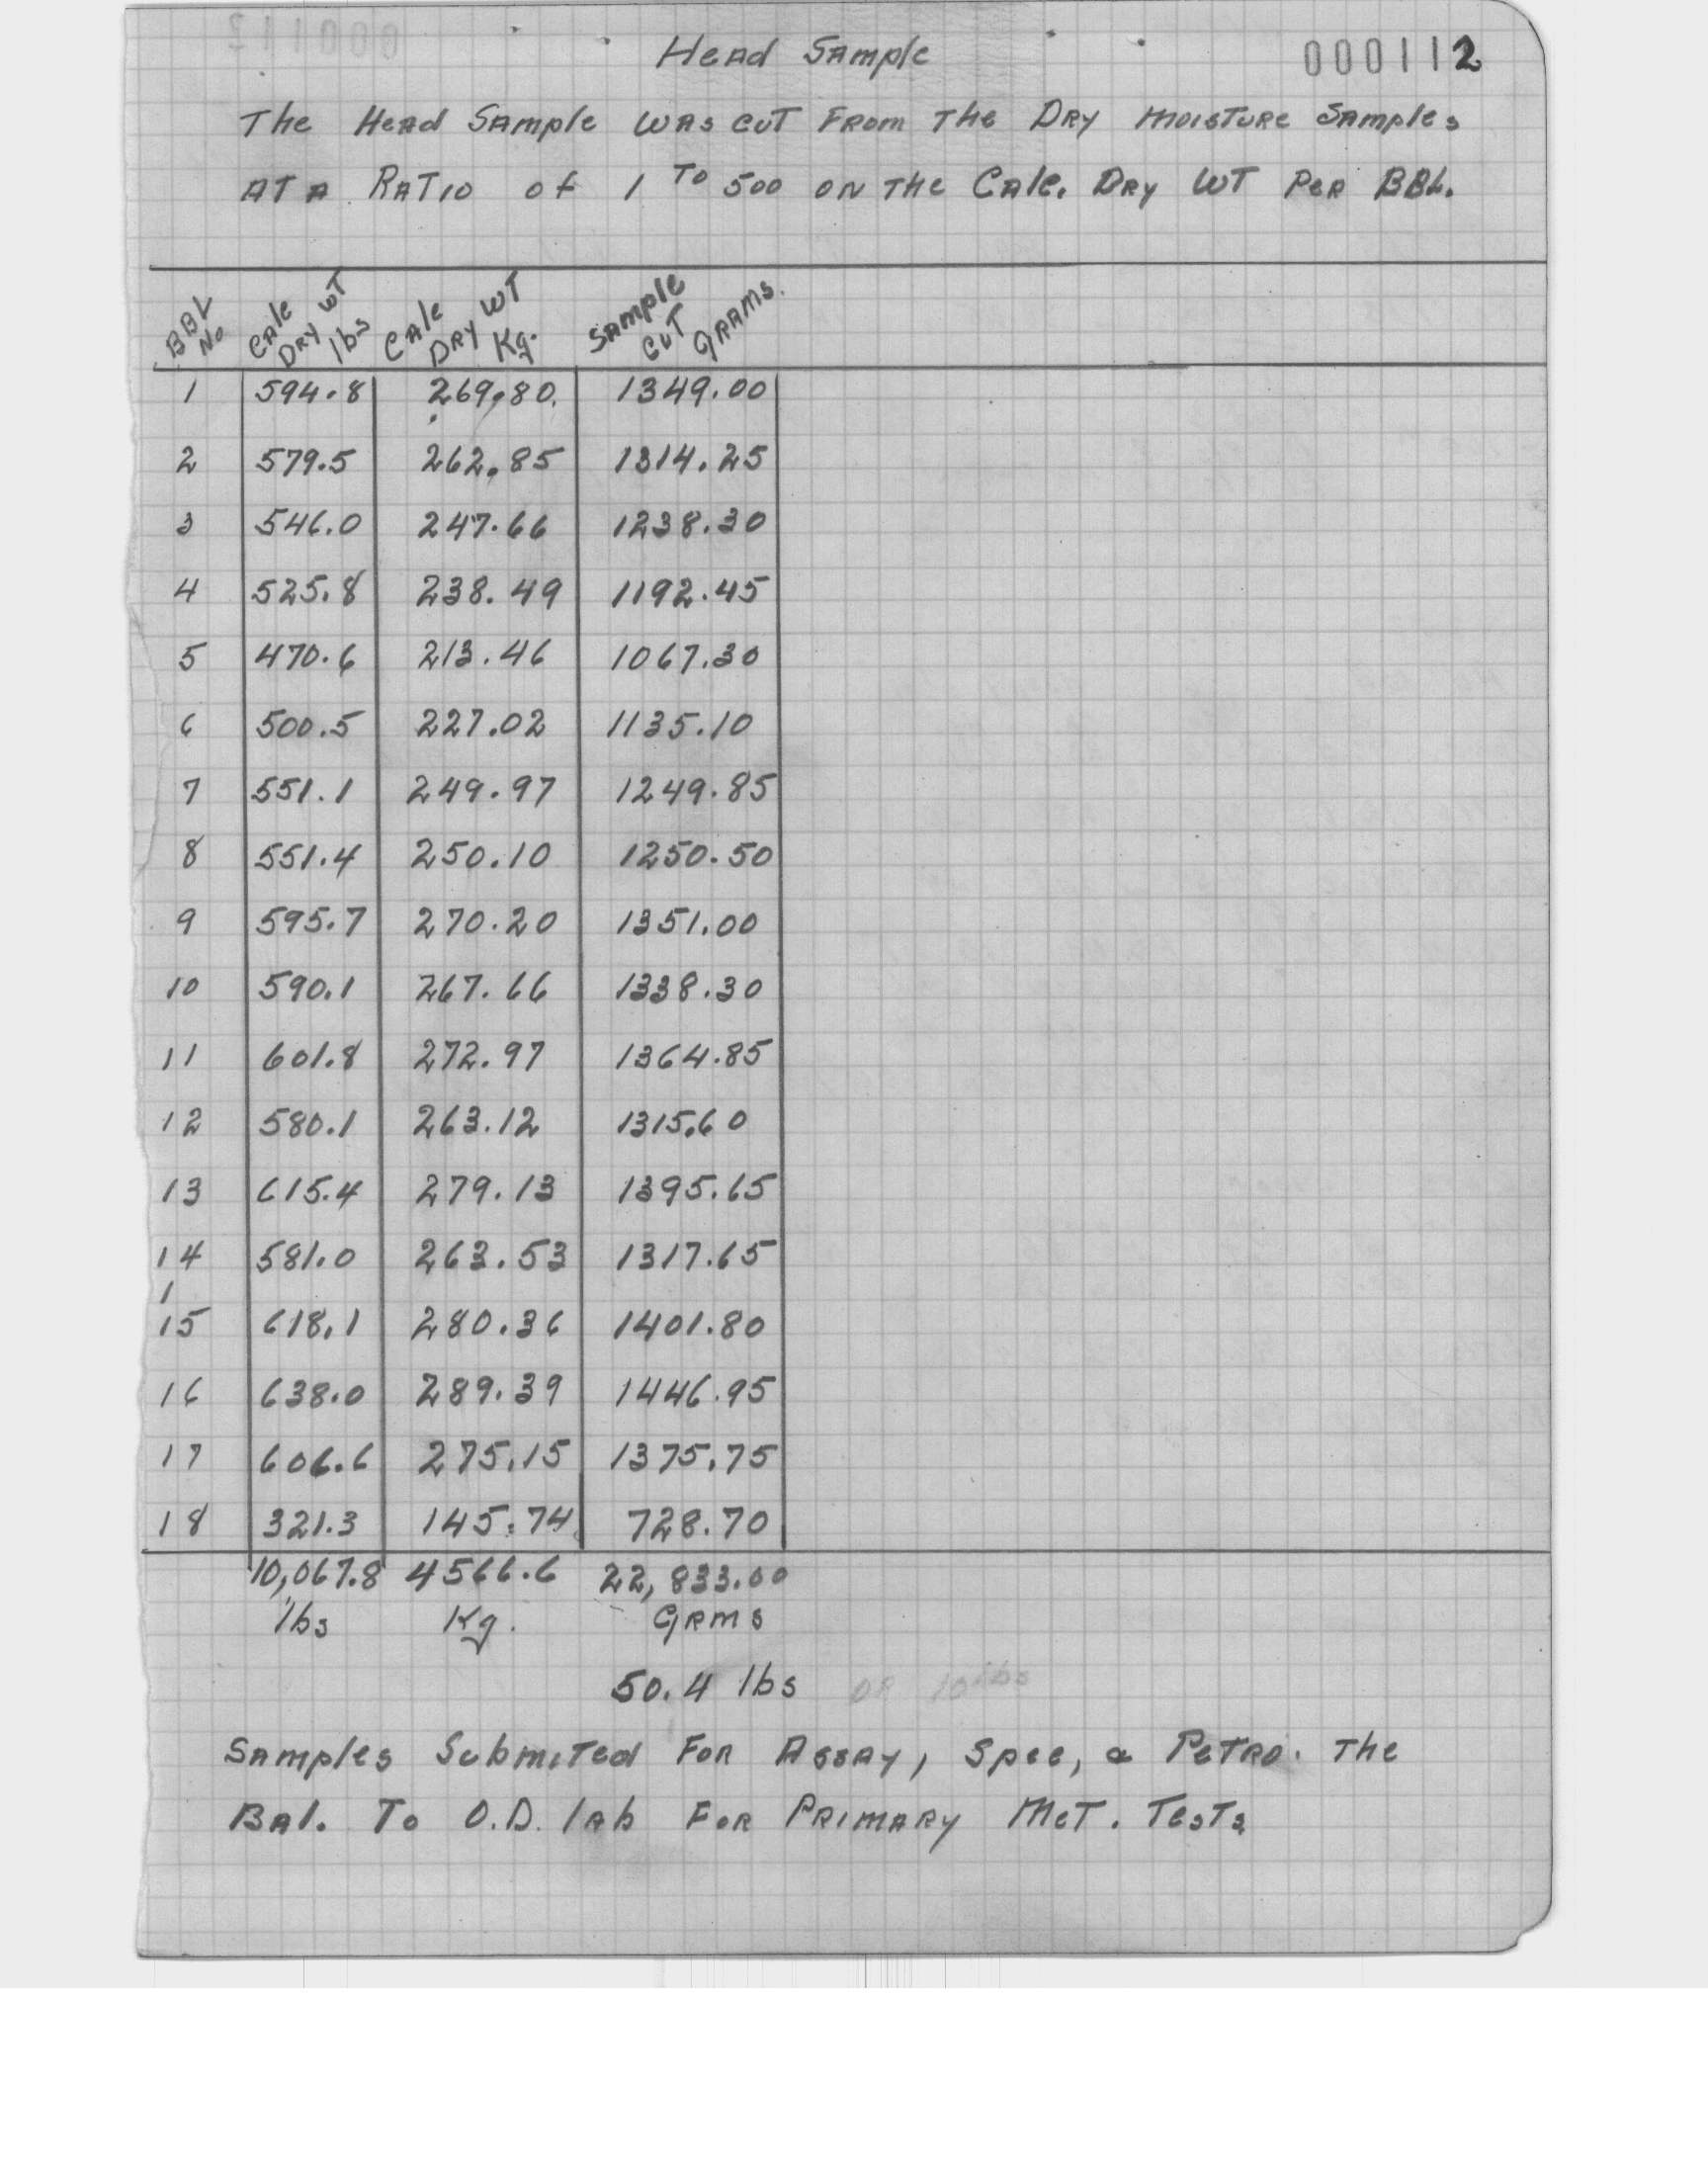 Head Sample
000112
The Head Sample was cut From The Dry moisture Samples
AT A Ratio of 1 To 500 on the Calc. Dry WT Per BBL.
BBL No Calc Dry WT lbs Calc Dry WT Kg. Sample Cut Grams.
1 594.8 269.80 1349.00
2 579.5 262.85 1314.25
3 546.0 247.66 1238.30
4 525.8 238.49 1192.45
5 470.6 213.46 1067.30
6 500.5 227.02 1135.10
7 551.1 249.97 1249.85
8 551.4 250.10 1250.50
9 595.7 270.20 1351.00
10 590.1 267.66 1338.30
11 601.8 272.97 1364.85
12 580.1 263.12 1315.60
13 615.4 279.13 1395.65
14 581.0 263.53 1317.65
15 618.1 280.36 1401.80
16 638.0 289.39 1446.95
17 606.6 275.15 1375.75
18 321.3 145.74 728.70
10,067.8 4566.6 22,833.00
lbs Kg. Grms
50.4 lbs
Samples Submited For Assay, Spec, & Petro. The
Bal. To O.D. lab For Primary Met. Tests